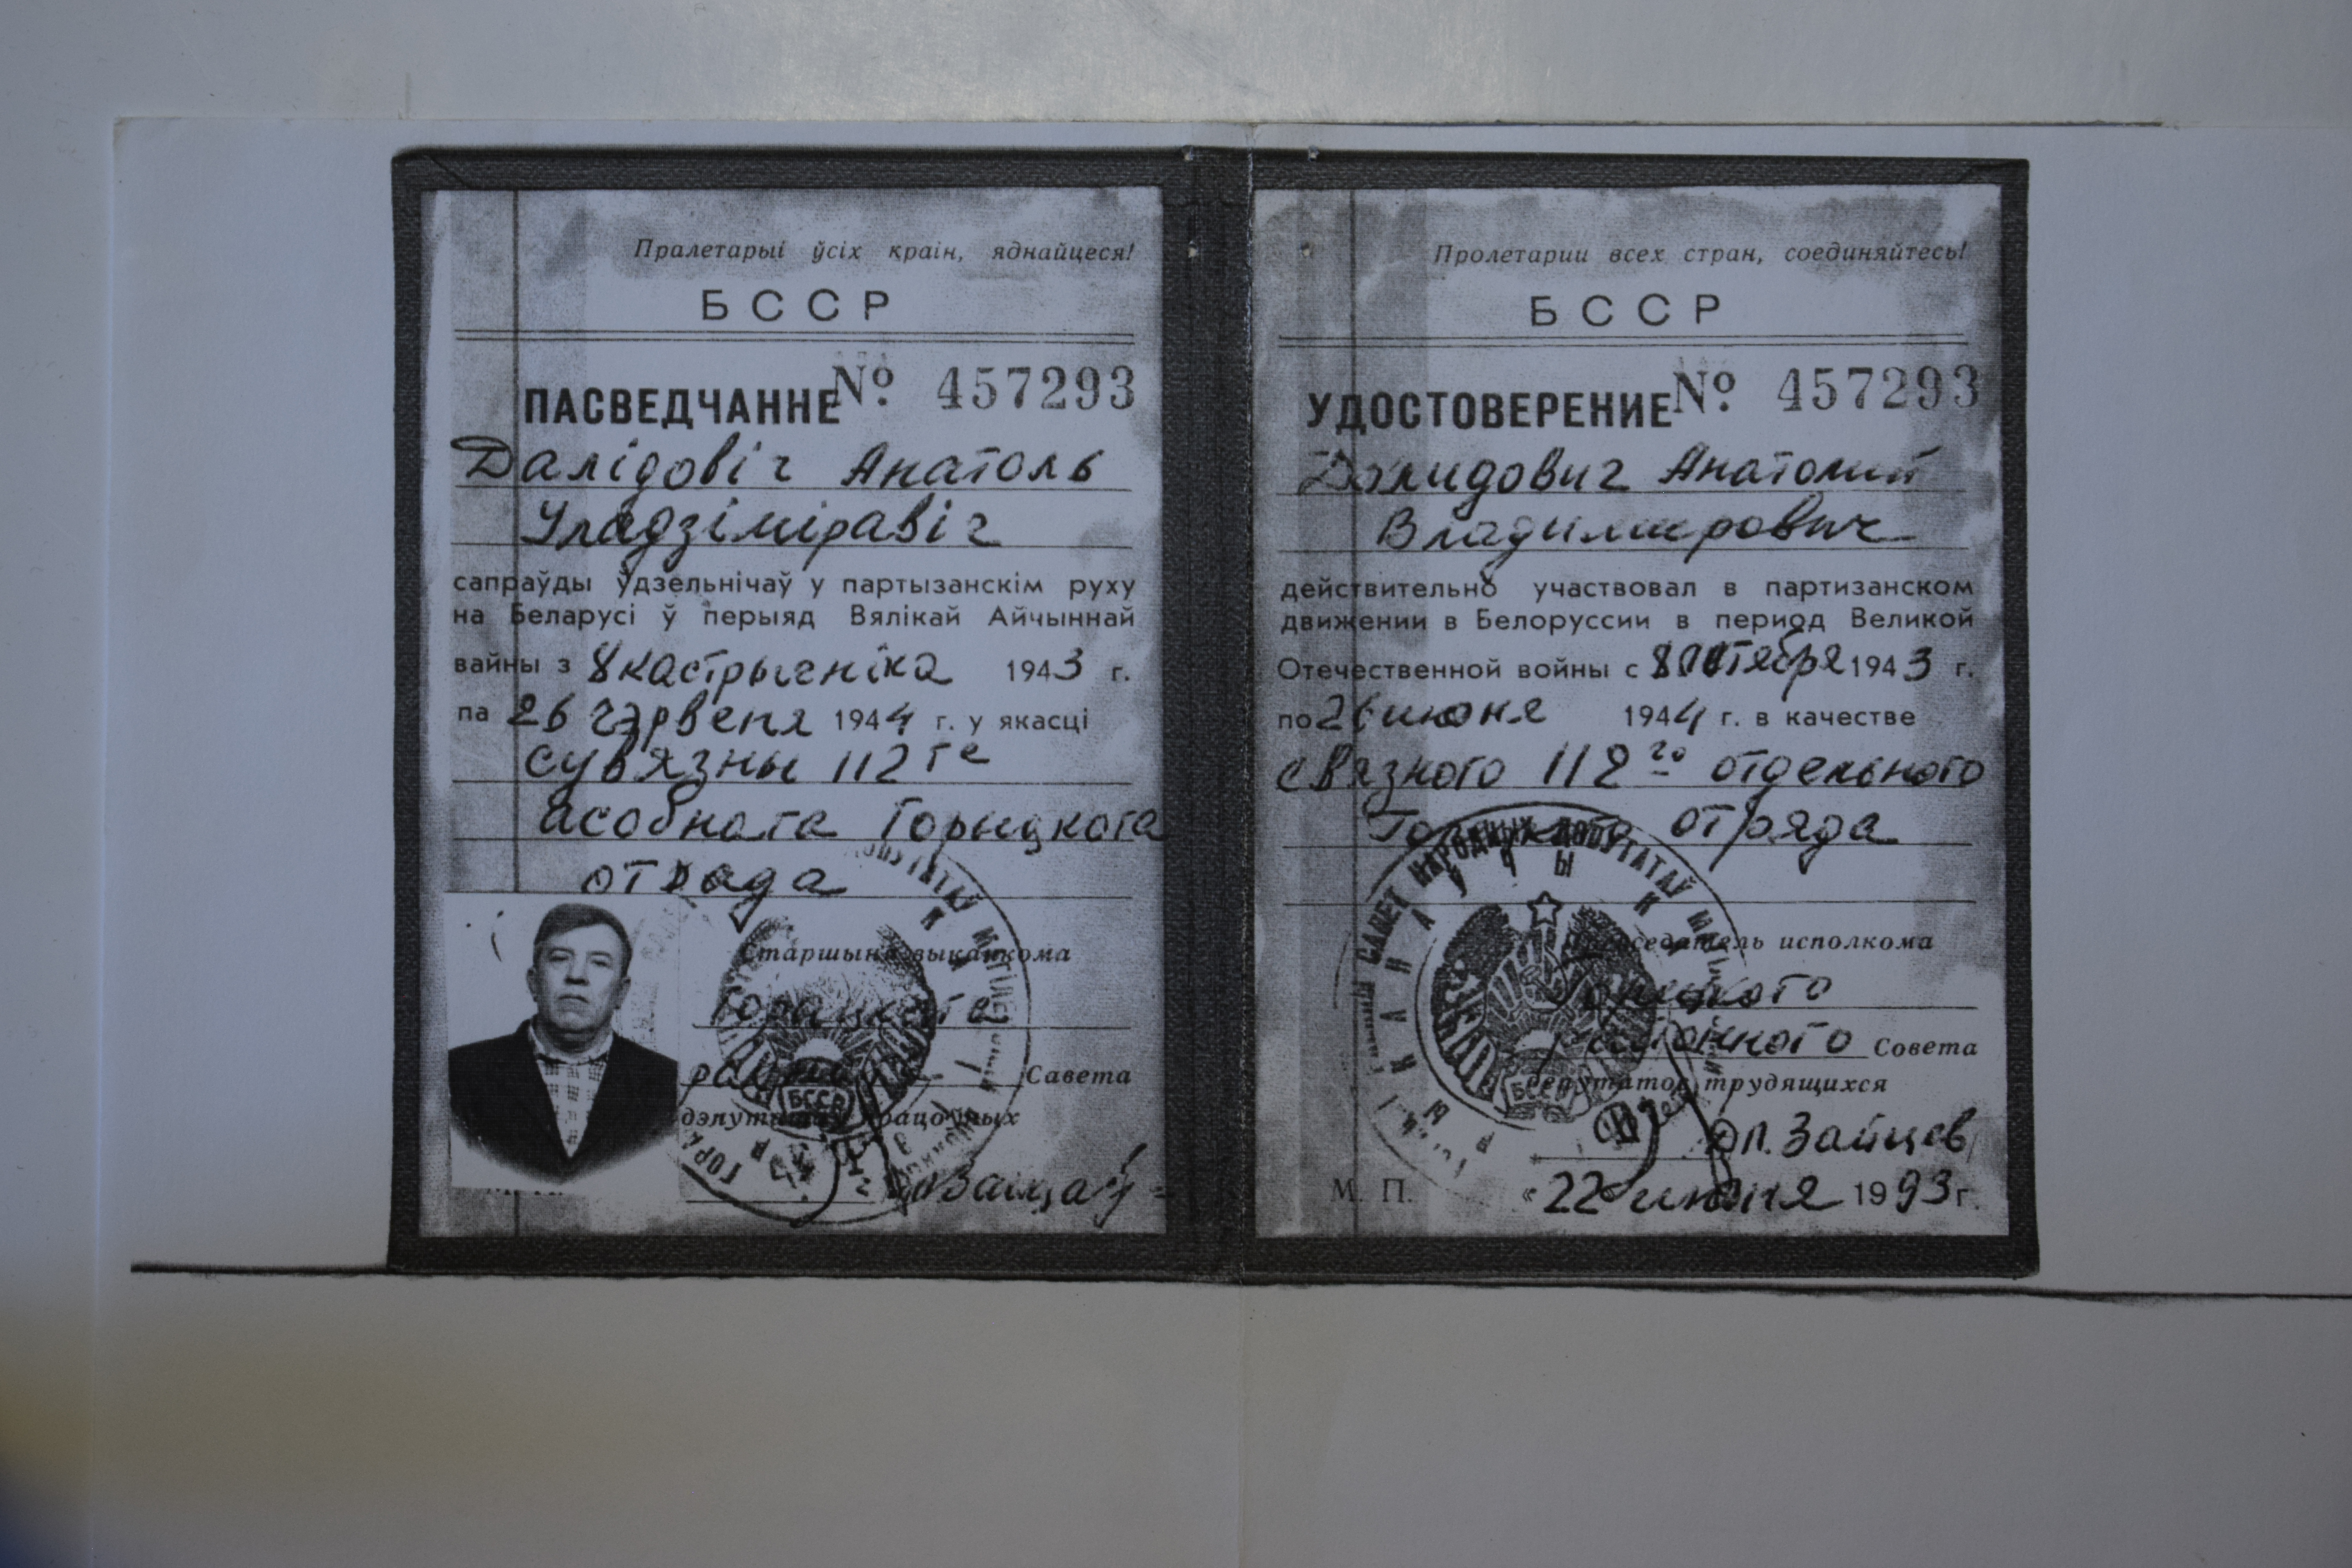 Пралетарыі ўсіх краін, яднайцеся!
БССР
ПАСВЕДЧАННЕ № 457293
Далідовіч Анатоль
Уладзіміравіч
сапраўды ўдзельнічаў у партызанскім руху
на Беларусі ў перыяд Вялікай Айчыннай
вайны з 8 кастрычніка 1943 г.
па 26 чэрвеня 1944 г. у якасці
сувязны 112 га
асобнага Горыцкага
отрада
Старшыня выканкома
Горацкага
Савета
дэпутатаў працоўных
Зайцаў
Пролетарии всех стран, соединяйтесь!
БССР
УДОСТОВЕРЕНИЕ № 457293
Долидович Анатолий
Владимирович
действительно участвовал в партизанском
движении в Белоруссии в период Великой
Отечественной войны с 8 октября 1943 г.
по 26 июня 1944 г. в качестве
связного 112 го отдельного
Горецкого отряда
САВЕТ НАРОДНЫХ ДЭПУТАТАЎ
БССР
Председатель исполкома
Горецкого
районного Совета
депутатов трудящихся
Зайцев
М. П. «22» июня 1993 г.